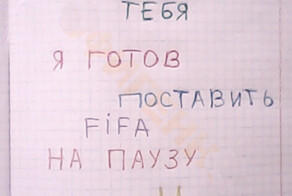 ТЕБЯ
Я ГОТОВ
ПОСТАВИТЬ
FiFA
НА ПАУЗУ